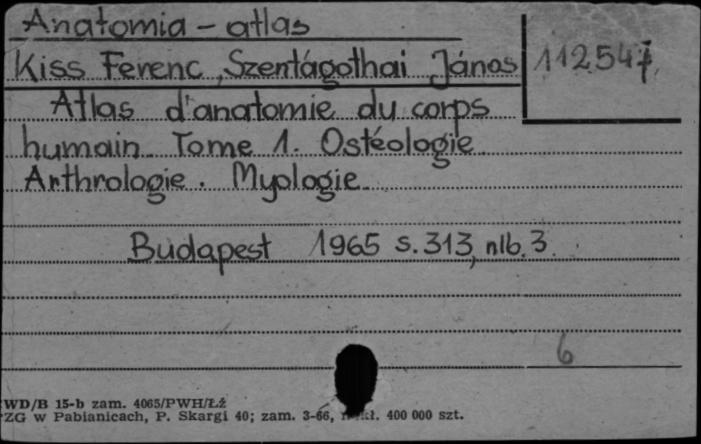 Anatomia - atlas
Kiss Ferenc, Szentágothai János
112547
Atlas d'anatomie du corps
humain Tome 1. Ostéologie
Arthrologie. Myologie
Budapest 1965 s. 313, nlb. 3
6
WD/B 15-b zam. 4065/PWH/Łż
ZG w Pabianicach, P. Skargi 40; zam. 3-66, 400 000 szt.